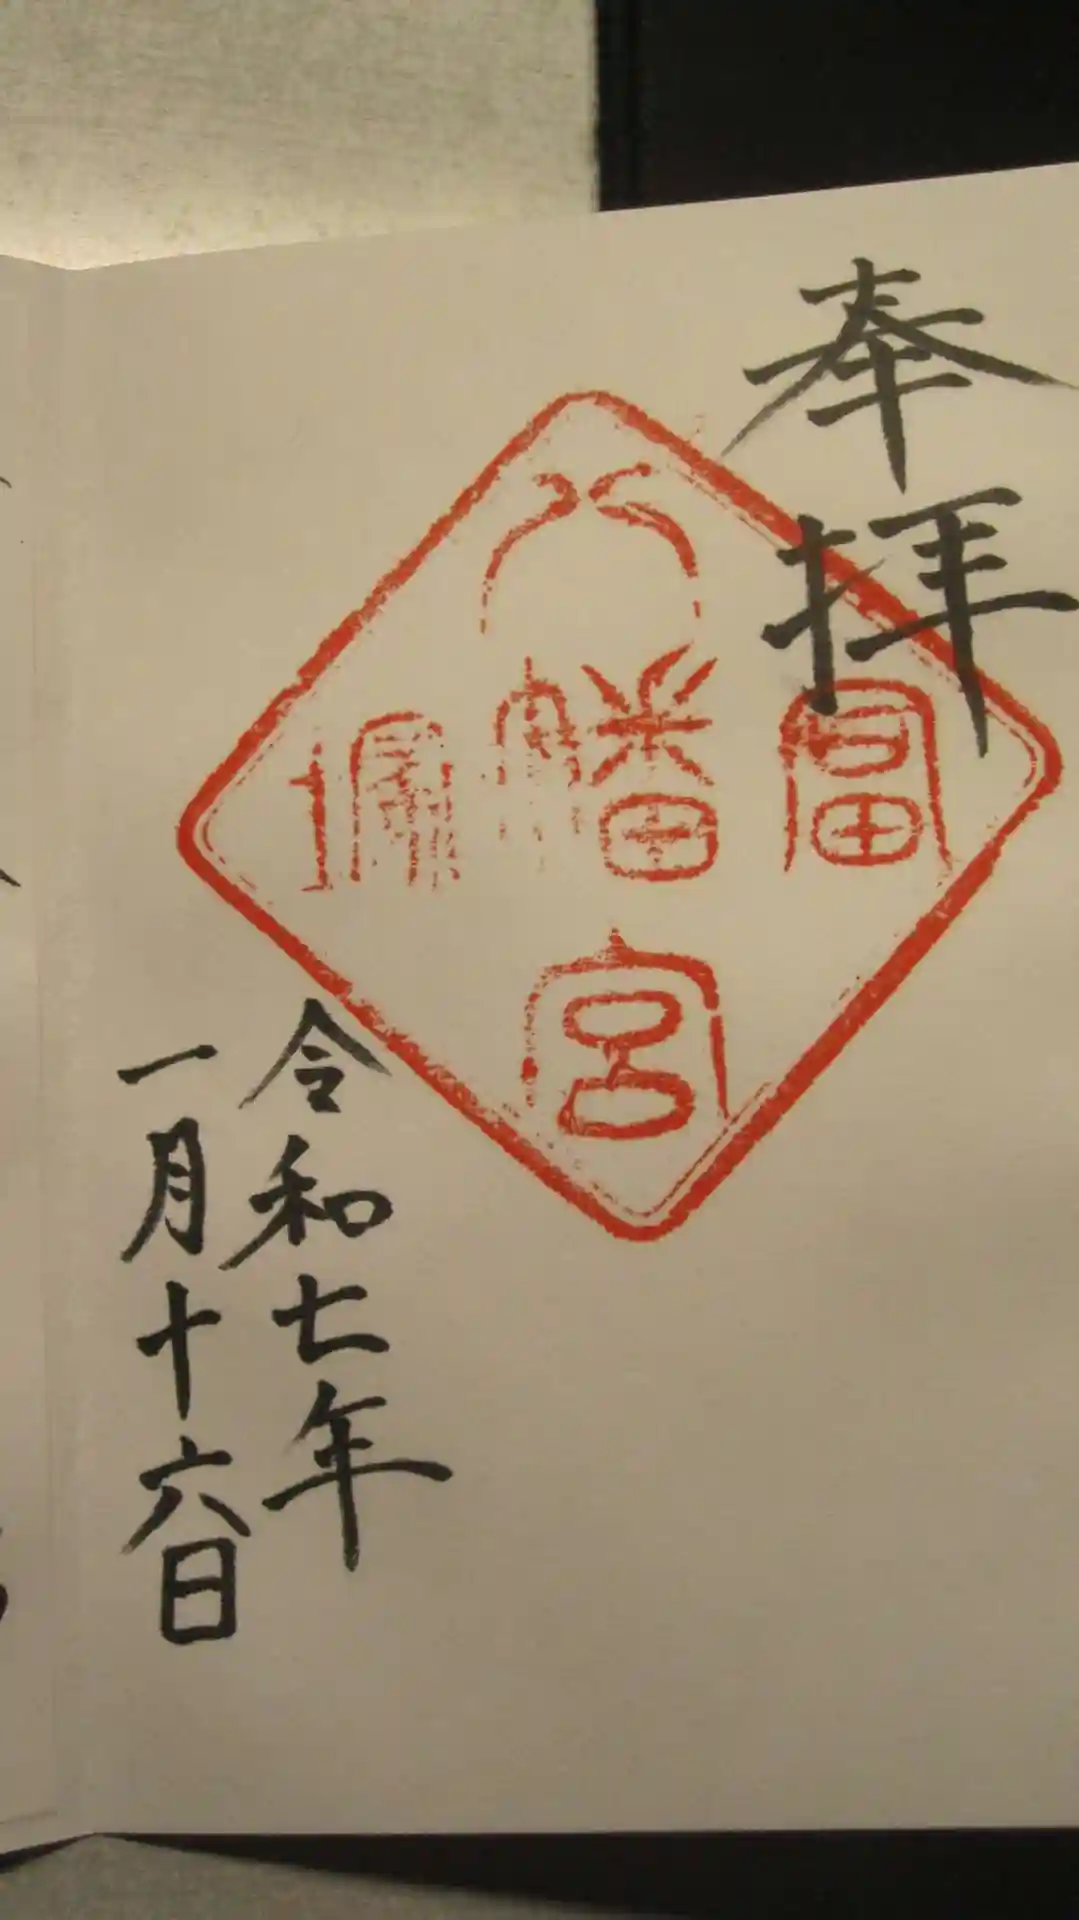 奉拝
富
八幡宮
令和七年
一月十六日